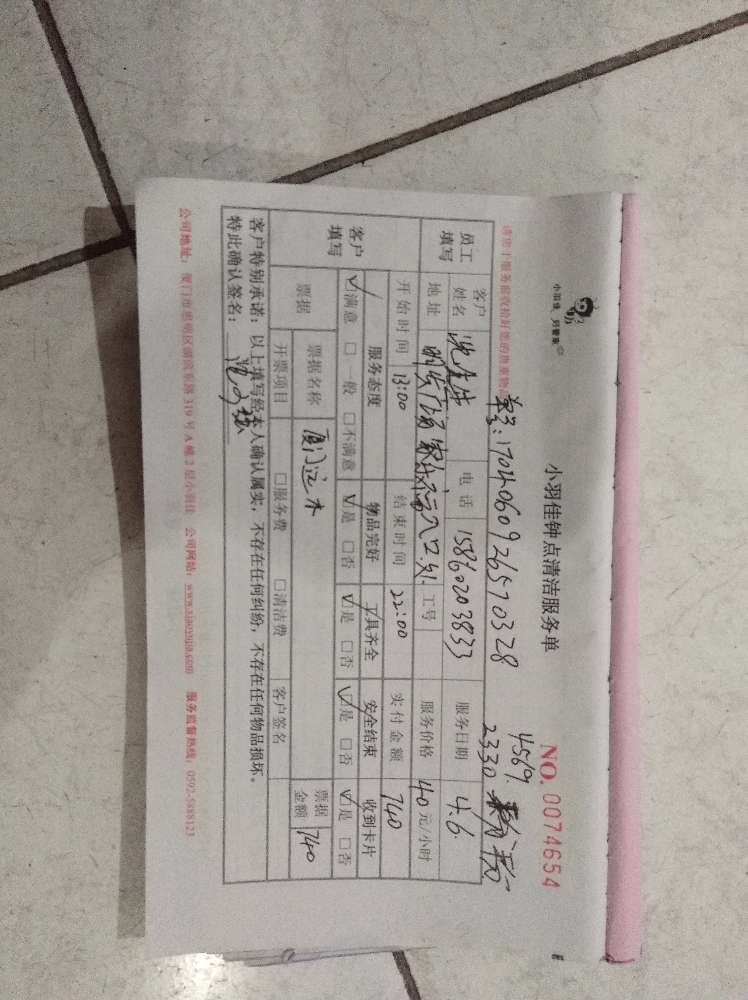 小羽佳 好管家
小羽佳钟点清洁服务单
NO. 0074654
单号:1704060926570328
4569.
2330
请您于服务前收拾好您的贵重物
员工填写
客户姓名 沈先生 电话 15860203833 服务日期 4.6.
地址 明发广场 入口处 工号 服务价格 40元/小时
客户填写
开始时间 13:00 结束时间 22:00 实付金额 740
服务态度 物品完好 工具齐全 安全结束 收到卡片
☑满意 □一般 □不满意 ☑是 □否 ☑是 □否 ☑是 □否 ☑是 □否
票据 票据名称 厦门 票据金额 740
开票项目 □服务费 □清洁费 客户签名
客户特别承诺:以上填写经本人确认属实,不存在任何纠纷,不存在任何物品损坏。
特此确认签名:
公司地址:厦门市思明区湖滨东路319号A幢2层小羽佳 公司网站:www.xiaoyujia.com 服务监督热线:0592-5888123